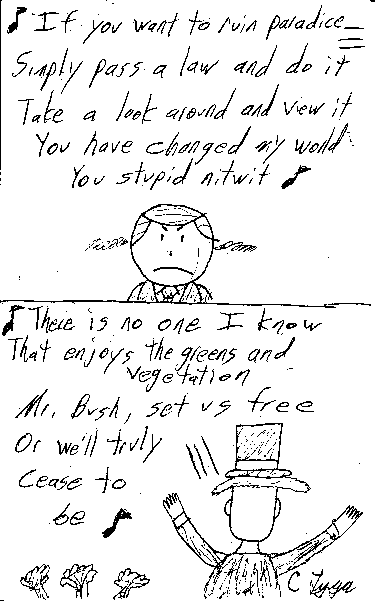 If you want to ruin paradice
Simply pass a law and do it
Take a look around and view it
You have changed my world
You stupid nitwit
There is no one I know
That enjoys the greens and
vegetation
Mr. Bush, set us free
Or we'll truly
Cease to
be
C Lyga